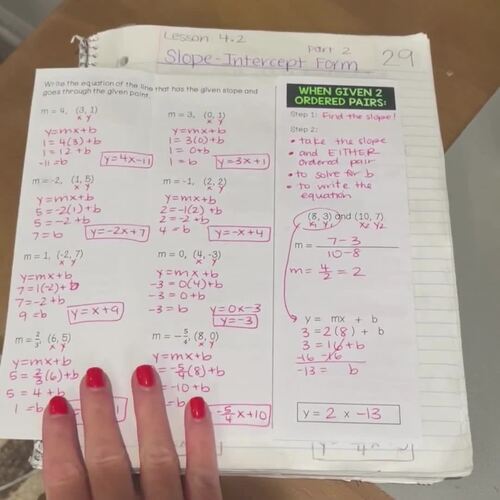 Lesson 4.2
part 2
Slope-Intercept Form
29
Write the equation of the line that has the given slope and
goes through the given point.
m = 4, (3, 1)
x y
y=mx+b
1 = 4(3)+b
1 = 12 + b
-11 = b
y=4x-11
m = 3, (0, 1)
x y
y=mx+b
1 = 3(0)+b
1 = 0+b
1 = b
y=3x+1
m = -2, (1, 5)
x y
y=mx+b
5 = -2(1)+b
5 = -2 + b
7 = b
y=-2x+7
m = -1, (2, 2)
x y
y=mx+b
2 = -1(2)+b
2 = -2+b
4 = b
y=-x+4
m = 1, (-2, 7)
x y
y=mx+b
7 = 1(-2)+b
7 = -2+b
9 = b
y=x+9
m = 0, (4, -3)
x y
y=mx+b
-3 = 0(4)+b
-3 = 0+b
-3 = b
y=0x-3
y=-3
m = 2/3, (6, 5)
x y
y=mx+b
5 = 2/3(6)+b
5 = 4+b
1 = b
m = -5/4, (8, 0)
x y
y=mx+b
= -5/4(8)+b
= -10+b
= b
-5/4x+10
WHEN GIVEN 2
ORDERED PAIRS:
Step 1: Find the slope!
Step 2:
• take the slope
• and EITHER
ordered pair
• to solve for b
• to write the
equation
(8, 3) and (10, 7)
x1 y1 x2 y2
m = 7-3
10-8
m = 4/2 = 2
y = mx + b
3 = 2(8) + b
3 = 16 + b
-16 -16
-13 = b
y = 2 x -13